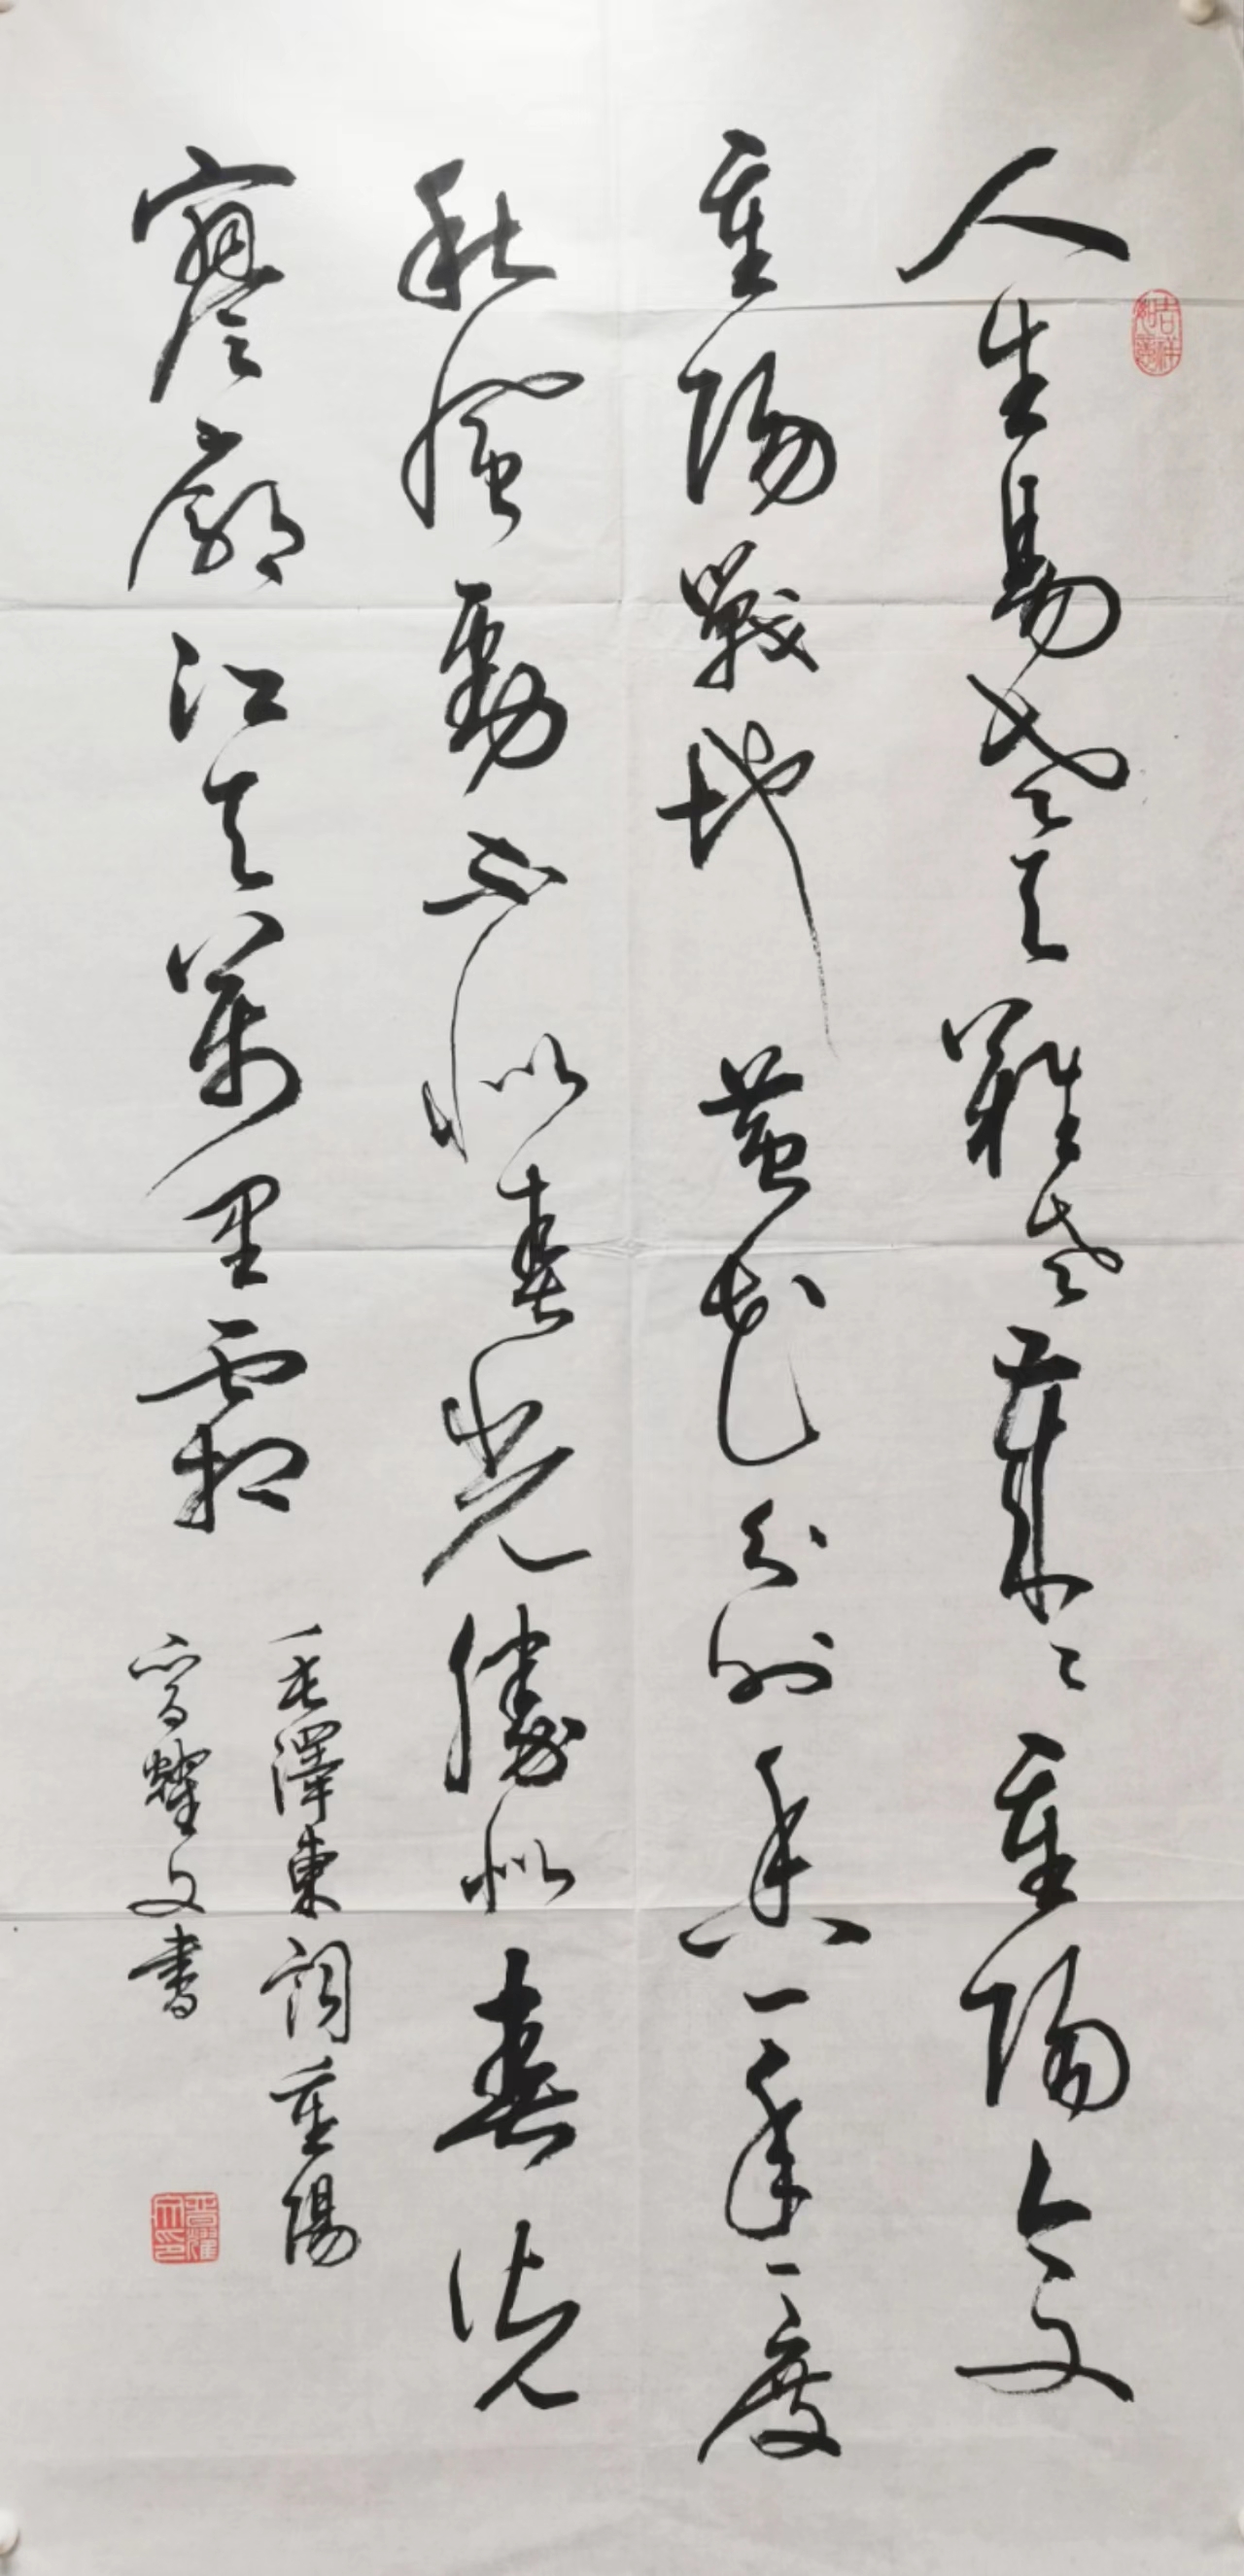 吉祥如意
人生易老天難老歲〻重陽今又
重陽戰地黃花分外香一年一度
秋風勁不似春光勝似春光
寥廓江天萬里霜
毛澤東詞重陽
晉耀文書
晉耀文印